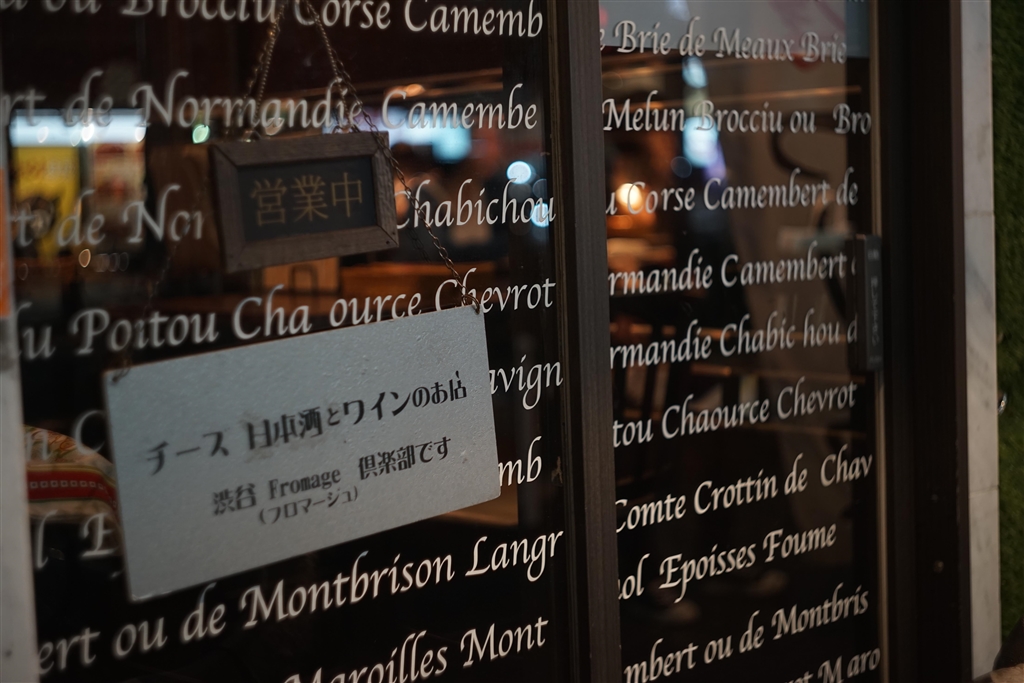 ou Brocciu Corse Camemb
rt de Normandie Camembe
営業中
t de Nor
Chabichou
du Poitou Cha ource Chevrot
avign
チーズ 日本酒とワインのお店
渋谷 Fromage 倶楽部です
(フロマージュ)
mb
ert ou de Montbrison Langr
Maroilles Mont
e Brie de Meaux Brie
Melun Brocciu ou Bro
u Corse Camembert de
rmandie Camembert
rmandie Chabic hou d
tou Chaource Chevrot
Comte Crottin de Chav
ol Epoisses Foume
mbert ou de Montbris
Maro